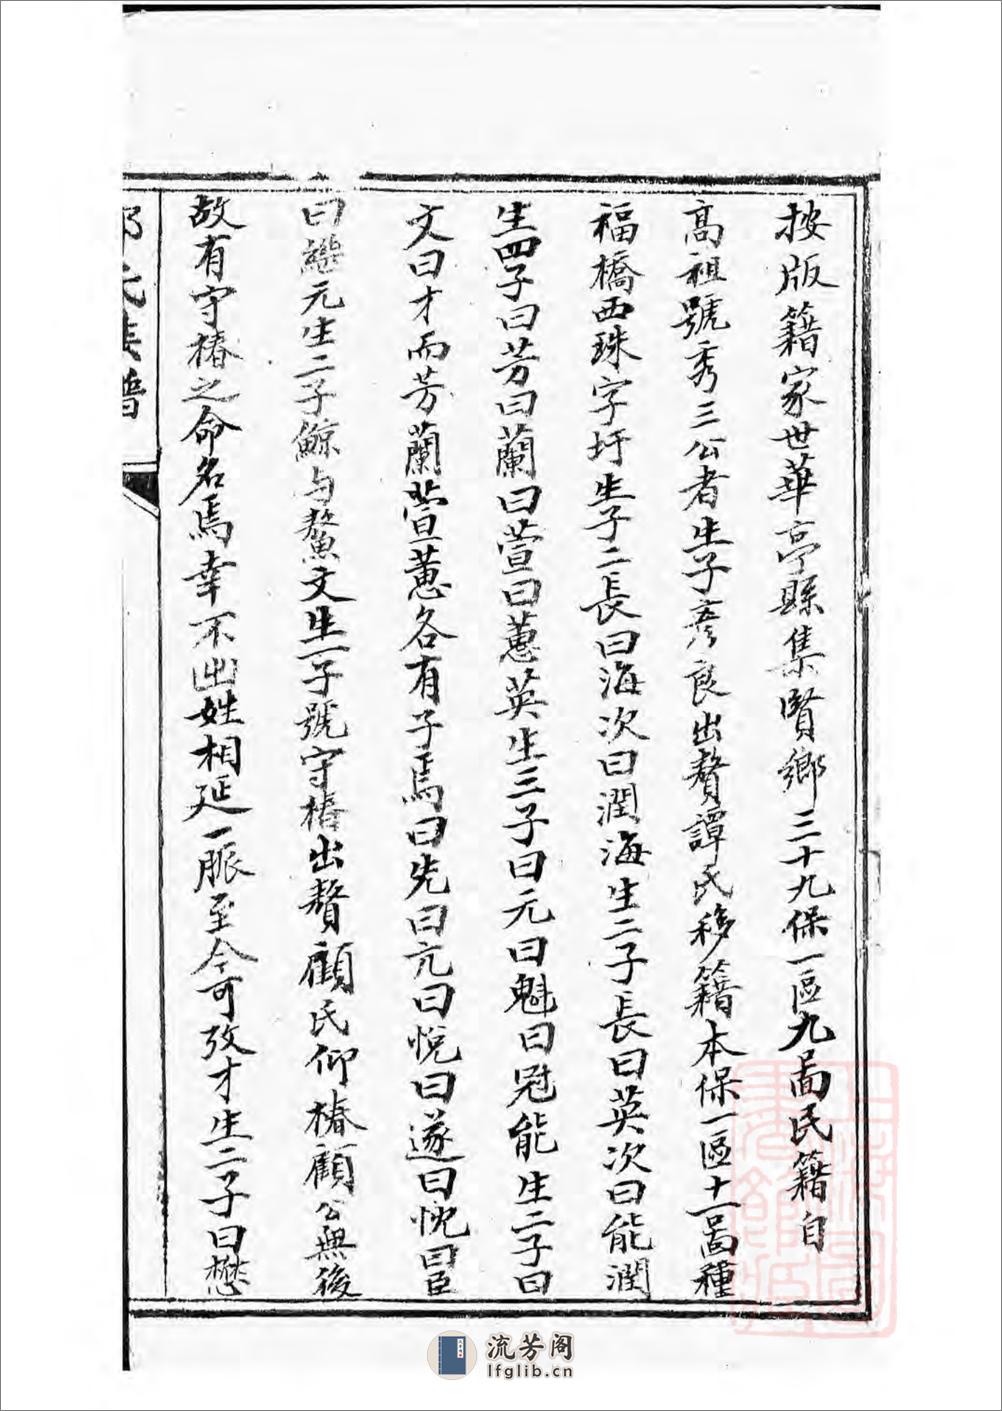 按版籍家世華亭縣集賢鄉三十九保一區九啚民籍自
高祖號秀三公者生子彥良出贅譚氏移籍本保一區十一啚種
福橋西珠字圩生子二長曰海次曰潤海生二子長曰英次曰能潤
生四子曰芳曰蘭曰萱曰蕙英生三子曰元曰魁曰冠能生二子曰
文曰才而芳蘭萱蕙各有子焉曰先曰亢曰悅曰遂曰忱曰臣
曰繼元生二子鯨与鰲文生一子號守椿出贅顧氏仰椿顧公無後
故有守椿之命名焉幸不出姓相延一脈至今可攷才生二子曰懋
氏族譜
流芳阁
lfglib.cn